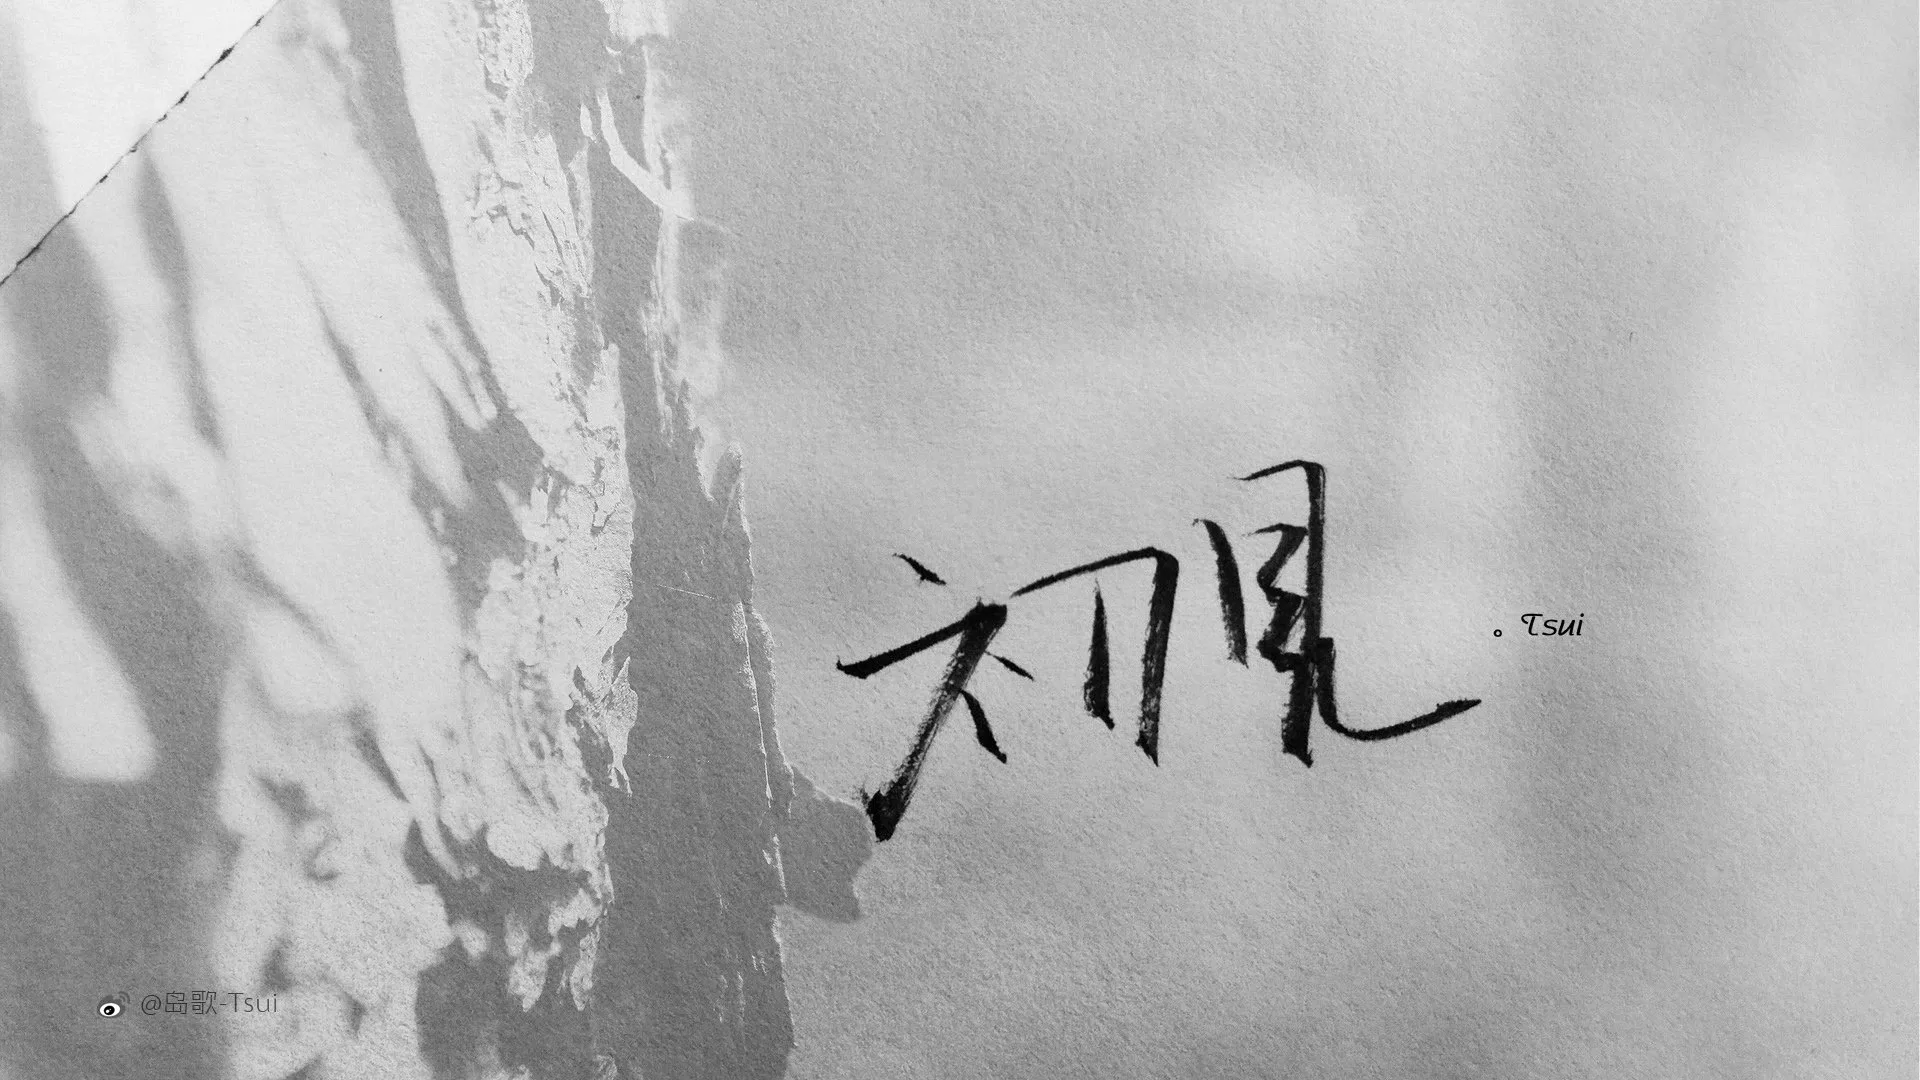 初見
。Tsui
@岛歌-Tsui